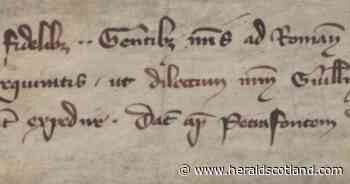 fidelibȝ .. Gentibȝ nr̃is ad Romanā
requiratis . ut dilectum nr̃m Guill
expedire . Dat̃ apd̃ Petrafontem
www.heraldscotland.com